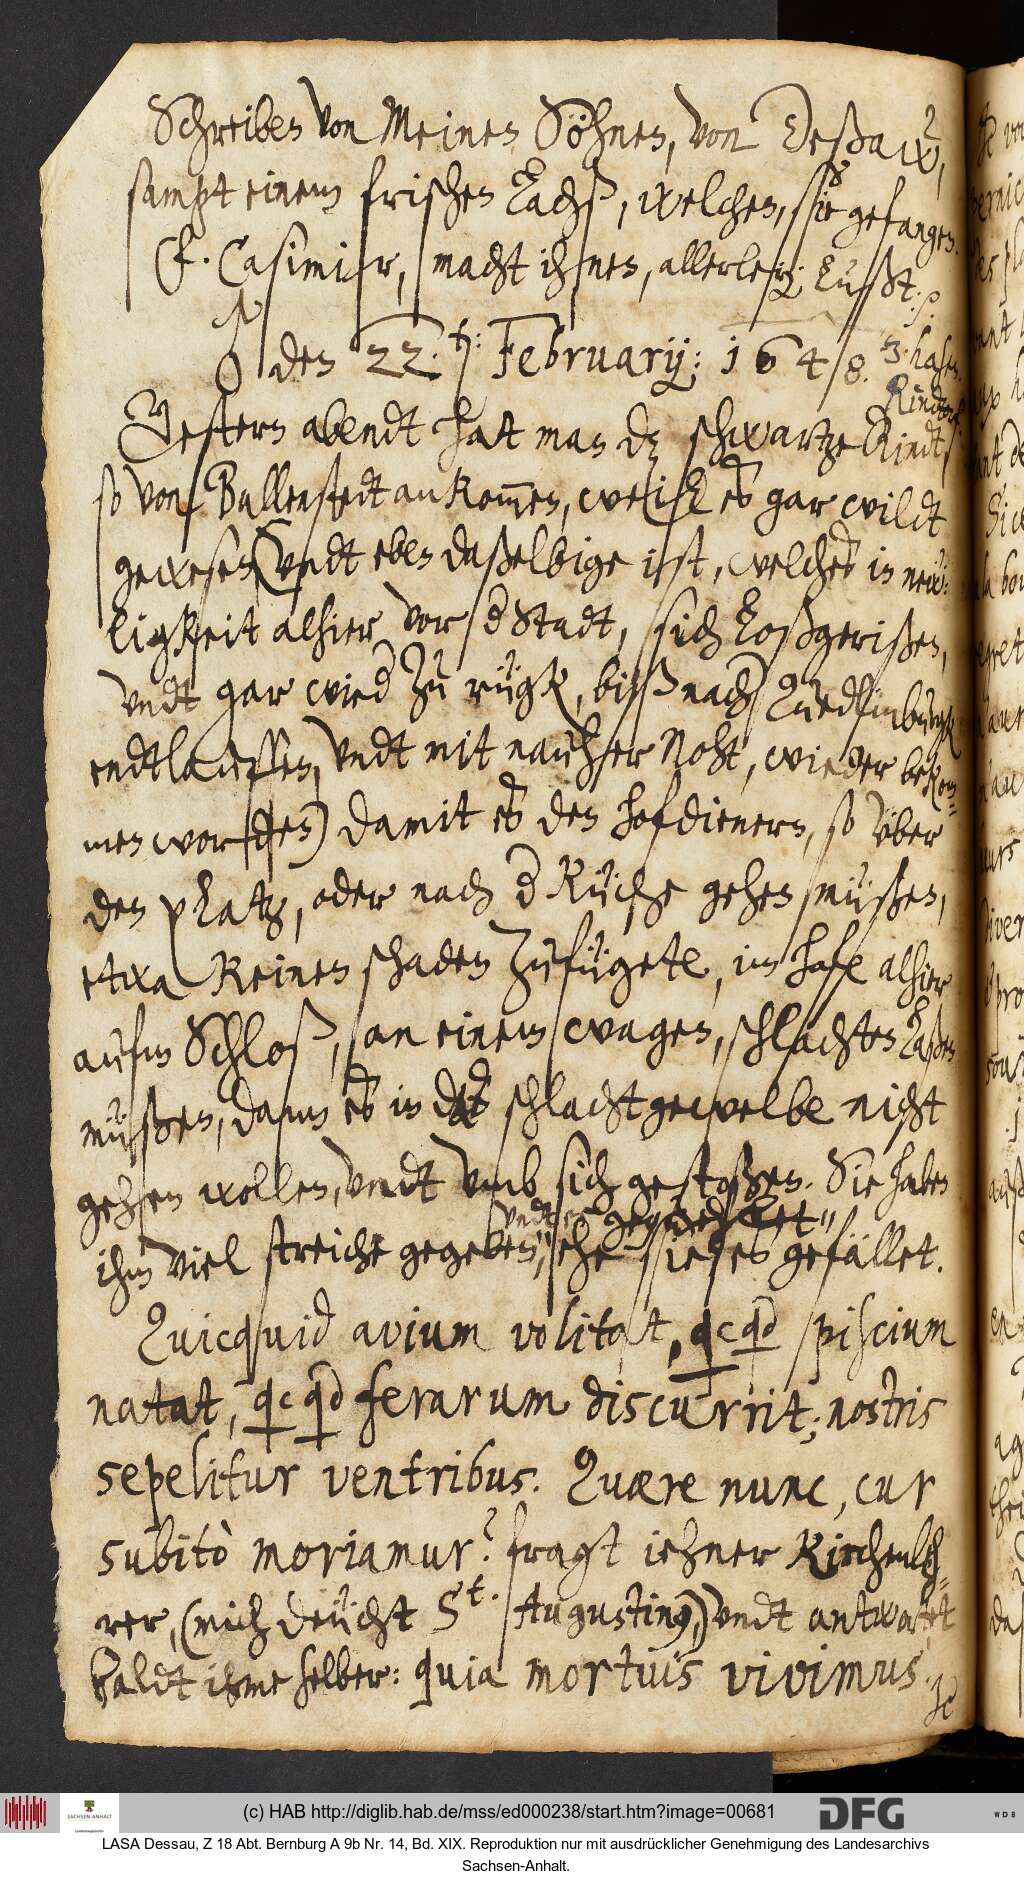 Schreiben von Meinen Söhnen, von Deßaw,
2
sampt einem frischen Lachß, welchen, sie gefangen.
F. Casimir, macht ihnen, allerley: Lußt.
☿ den 22. t: Februarij: 1648.
3. hasen.
Rindorf.
Gestern abendt hat man dz schwartze Rindt,
so von Ballenstedt ankommen, weil es gar wildt
gewesen (vndt eben daßelbige ist, welches in new:
ligkeit alhier vor d Stadt, sich Loßgerißen,
vndt gar wied zu rügk, biß nach Quedlinburgk
endtlauffen, vndt mit nauher Noht, wieder bekom=
men worden) damit es den hofdienern, so vber
den platz, oder nach d Küche gehen müßen,
etwa Keinen schaden zufügete, im hofe alhier
aufm Schloß, an einem wagen, schlachten Laßen
müßen, dann es in das schlachtgewelbe nicht
gehen wollen, vndt vmb sich gestoßen. Sie haben
vndt er gequehlet"
ihm viel streiche gegeben," ehe sie es gefället.
Quicquid avium volitat, qcqd piscium
natat, qcqd ferarum discurrit; nostris
sepelitur ventribus. Quære nunc, cur
subitò moriamur? fragt iehner Kirchenleh=
rer, (mich deücht St. Augustinus,) vndt antwortet
baldt ihme selber: quia mortuis vivimus. &c
(c) HAB http://diglib.hab.de/mss/ed000238/start.htm?image=00681
SACHSEN-ANHALT
DFG
WDB
LASA Dessau, Z 18 Abt. Bernburg A 9b Nr. 14, Bd. XIX. Reproduktion nur mit ausdrücklicher Genehmigung des Landesarchivs
Sachsen-Anhalt.